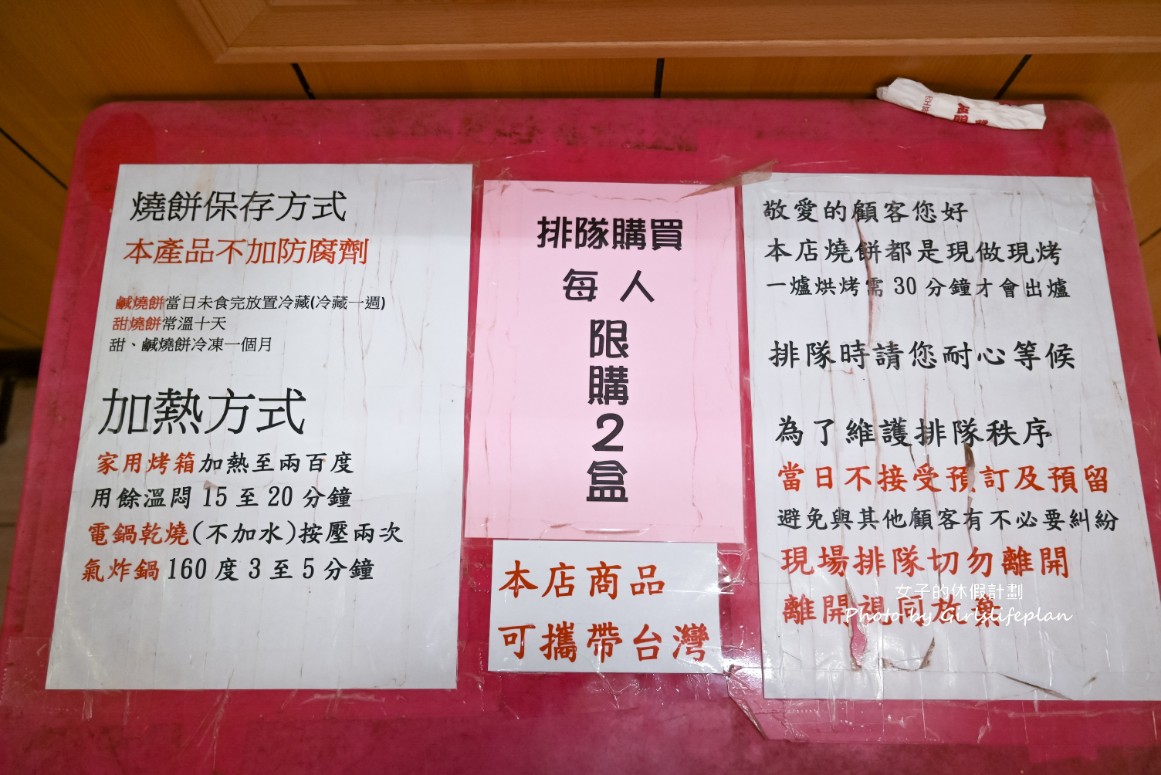 燒餅保存方式
本產品不加防腐劑
鹹燒餅當日未食完放置冷藏(冷藏一週)
甜燒餅常溫十天
甜、鹹燒餅冷凍一個月
加熱方式
家用烤箱加熱至兩百度
用餘溫悶 15 至 20 分鐘
電鍋乾燒(不加水)按壓兩次
氣炸鍋 160 度 3 至 5 分鐘
排隊購買
每人
限
購
2
盒
本店商品
可攜帶台灣
敬愛的顧客您好
本店燒餅都是現做現烤
一爐烘烤需 30 分鐘才會出爐
排隊時請您耐心等候
為了維護排隊秩序
當日不接受預訂及預留
避免與其他顧客有不必要糾紛
現場排隊切勿離開
離開視同放棄
女子的休假計劃
Photo by Girlslifeplan